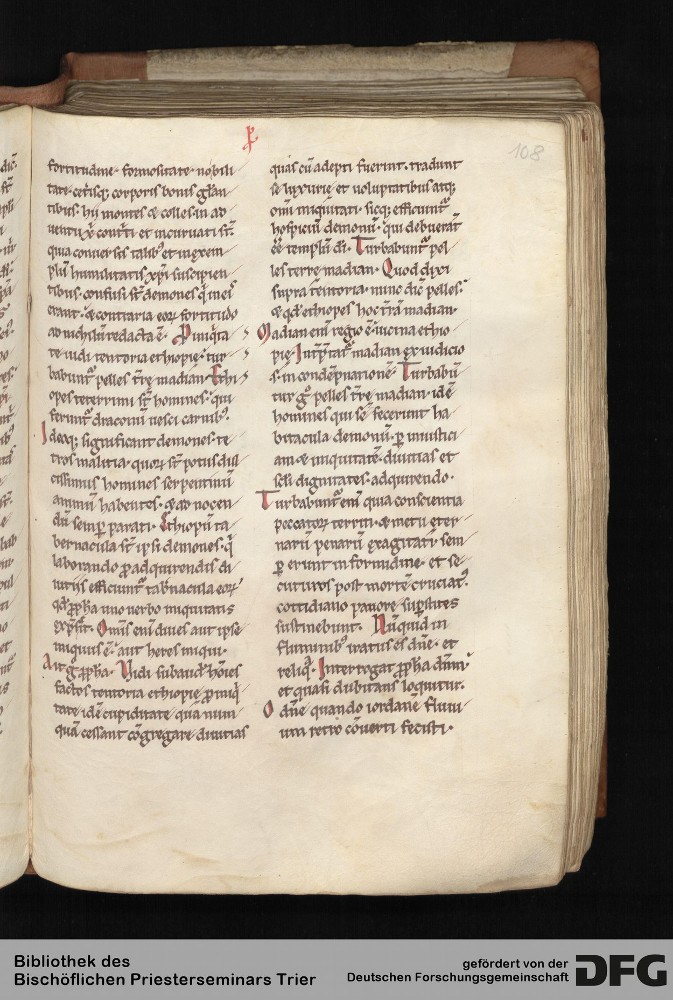 108
fortitudine· formositate· nobili
tate· cetisq; corporis bonis glan
tibus· hij montes & colles in ad
uentu x̄ contti et incuruati st̄·
quia conuersis talib; et in exem
plū humilitatis xp̄i suscipien
tibus· confusi st̄ demones q̄ in eis
erant· & contraria eoꝝ fortitudo
ad nichilū redacta ē· P iniqⁱta
te uidi tentoria ethiopie· tur
babuntᷣ pelles tr̄e madian· Ethi
opes teterrimi st̄ homines· qui
feruntᷣ draconū uesci carnib;·
Ideoq; significant demones· te
tros malitia· quoꝝ st̄ potus
homines serpentinū
animū habentes· & ad nocen
dū semꝑ parati· Ethiopū ta
bernacula st̄ ipsi demones· q̄
laborando ꝓ adquirendis di
uitijs efficiuntᷣ tabnacula eoꝝ·
qd̄ ꝓph̄a uno uerbo iniquitatis
exp̄ssit· Omnis enī diues aut ipse
iniquus ē· aut heres iniqui·
Ait g̊ ꝓph̄a· Vidi subaud̄ hōies
factos tentoria ethiopie ꝓ iniqⁱ
tate idē cupiditate quā num
quā cessant cōgregare diuitias
quas cū adepti fuerint· tradunt
se luxurie et uoluptatibus atq;
omī iniquitati· sicq; efficiuntᷣ
hospiciū demonū· qui debuerāt
ee templū di· Turbabuntᷣ pel
les terre madian· Quod dixi
supra tentoria· nunc dic̄ pelles·
& qd̄ ethiopes hoc tr̄ā madian·
Madian enī regio ē uicina ethio
pie· Intp̄tatᷣ madian ex iudicio
·s· in condēpnatione· Turbabū
tur g̊ pelles tr̄e madian· idē
homines qui se fecerunt ha
bitacula demonū· ꝑ iniustici
am· & iniquitatē· diuitias et
scl̄i dignitates· adquirendo·
Turbabuntᷣ enī quia conscientia
peccatoꝝ territi· & metu eter
narū penarū exagitati· sem
ꝑ erunt in formidine· et se
cuturos post mortē cruciat;·
cottidiano pauore suꝑstites
sustinebunt· Nūquid in
fluminib; iratus es dn̄e· et
reliq̄· Interrogat ꝓph̄a dn̄m
et quasi dubitans loquitur·
O dn̄e quando iordanē fluui
um retro cōuerti fecisti·
Bibliothek des
Bischöflichen Priesterseminars Trier
gefördert von der
Deutschen Forschungsgemeinschaft
DFG